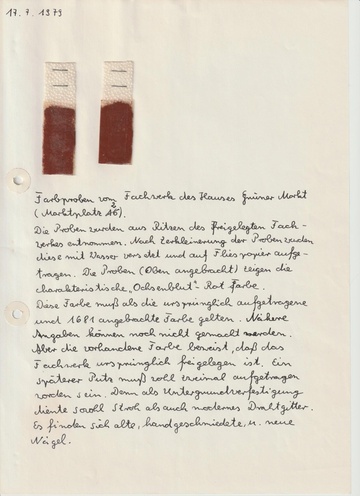 17. 7. 1979
Farbproben vom Fachwerk des Hauses Grüner Markt
(Marktplatz 16).
Die Proben wurden aus Ritzen des freigelegten Fach-
werkes entnommen. Nach Zerkleinerung der Proben wurden
diese mit Wasser versetzt und auf Fliespapier aufge-
tragen. Die Proben (Oben angebracht) zeigen die
charakteristische „Ochsenblut"- Rot Farbe.
Diese Farbe muß als die ursprünglich aufgetragene
und 1681 angebrachte Farbe gelten. Nähere
Angaben können noch nicht gemacht werden.
Aber die vorhandene Farbe beweist, daß das
Fachwerk ursprünglich freigelegen ist. Ein
späterer Putz muß wohl zweimal aufgetragen
worden sein. Denn als Untergrundverfestigung
diente sowohl Stroh als auch modernes Drahtgitter.
Es finden sich alte, handgeschmiedete, u. neue
Nägel.